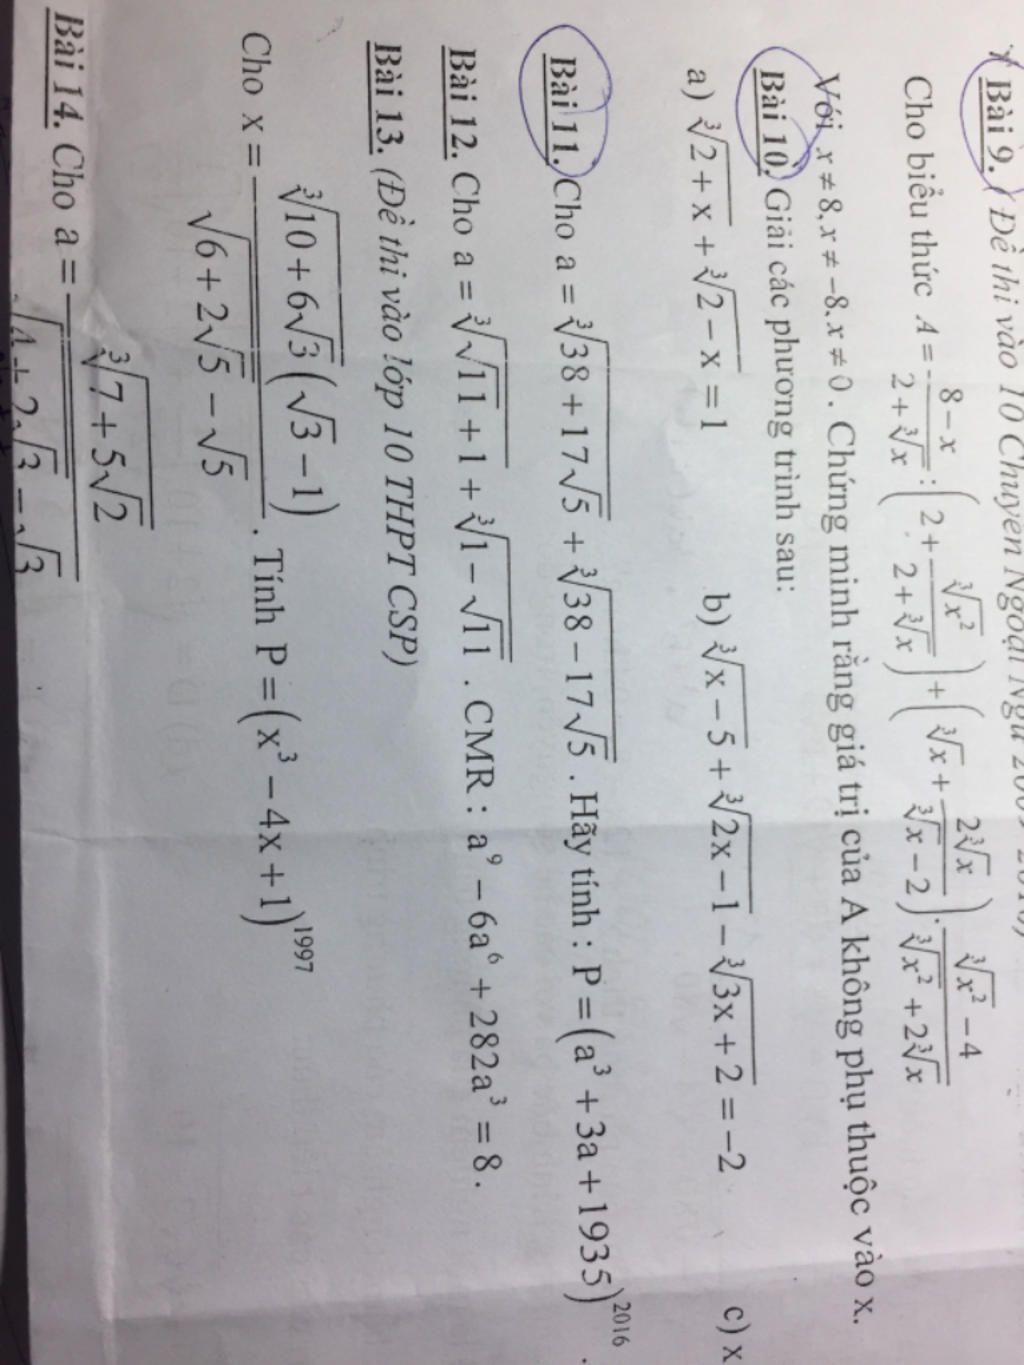 Bài 9. (Đề thi vào 10 Chuyên Ngoại Ngữ 2009-2010)
Cho biểu thức A = \frac{8-x}{2+\sqrt[3]{x}} : \left(2+\frac{\sqrt[3]{x^2}}{2+\sqrt[3]{x}}\right) + \left(\sqrt[3]{x}+\frac{2\sqrt[3]{x}}{\sqrt[3]{x}-2}\right) \cdot \frac{\sqrt[3]{x^2}-4}{\sqrt[3]{x^2}+2\sqrt[3]{x}}
Với x ≠ 8, x ≠ −8, x ≠ 0. Chứng minh rằng giá trị của A không phụ thuộc vào x.
Bài 10. Giải các phương trình sau:
a) \sqrt[3]{2+x} + \sqrt[3]{2-x} = 1 b) \sqrt[3]{x-5} + \sqrt[3]{2x-1} - \sqrt[3]{3x+2} = -2 c) x
Bài 11. Cho a = \sqrt[3]{38+17\sqrt{5}} + \sqrt[3]{38-17\sqrt{5}}. Hãy tính : P = (a^3 + 3a + 1935)^{2016}.
Bài 12. Cho a = \sqrt[3]{\sqrt{11}+1} + \sqrt[3]{1-\sqrt{11}}. CMR : a^9 - 6a^6 + 282a^3 = 8.
Bài 13. (Đề thi vào lớp 10 THPT CSP)
Cho x = \frac{\sqrt[3]{10+6\sqrt{3}}(\sqrt{3}-1)}{\sqrt{6+2\sqrt{5}}-\sqrt{5}}. Tính P = (x^3 - 4x + 1)^{1997}
Bài 14. Cho a = \frac{\sqrt[3]{7+5\sqrt{2}}}{\sqrt{4+2\sqrt{3}}-\sqrt{3}}